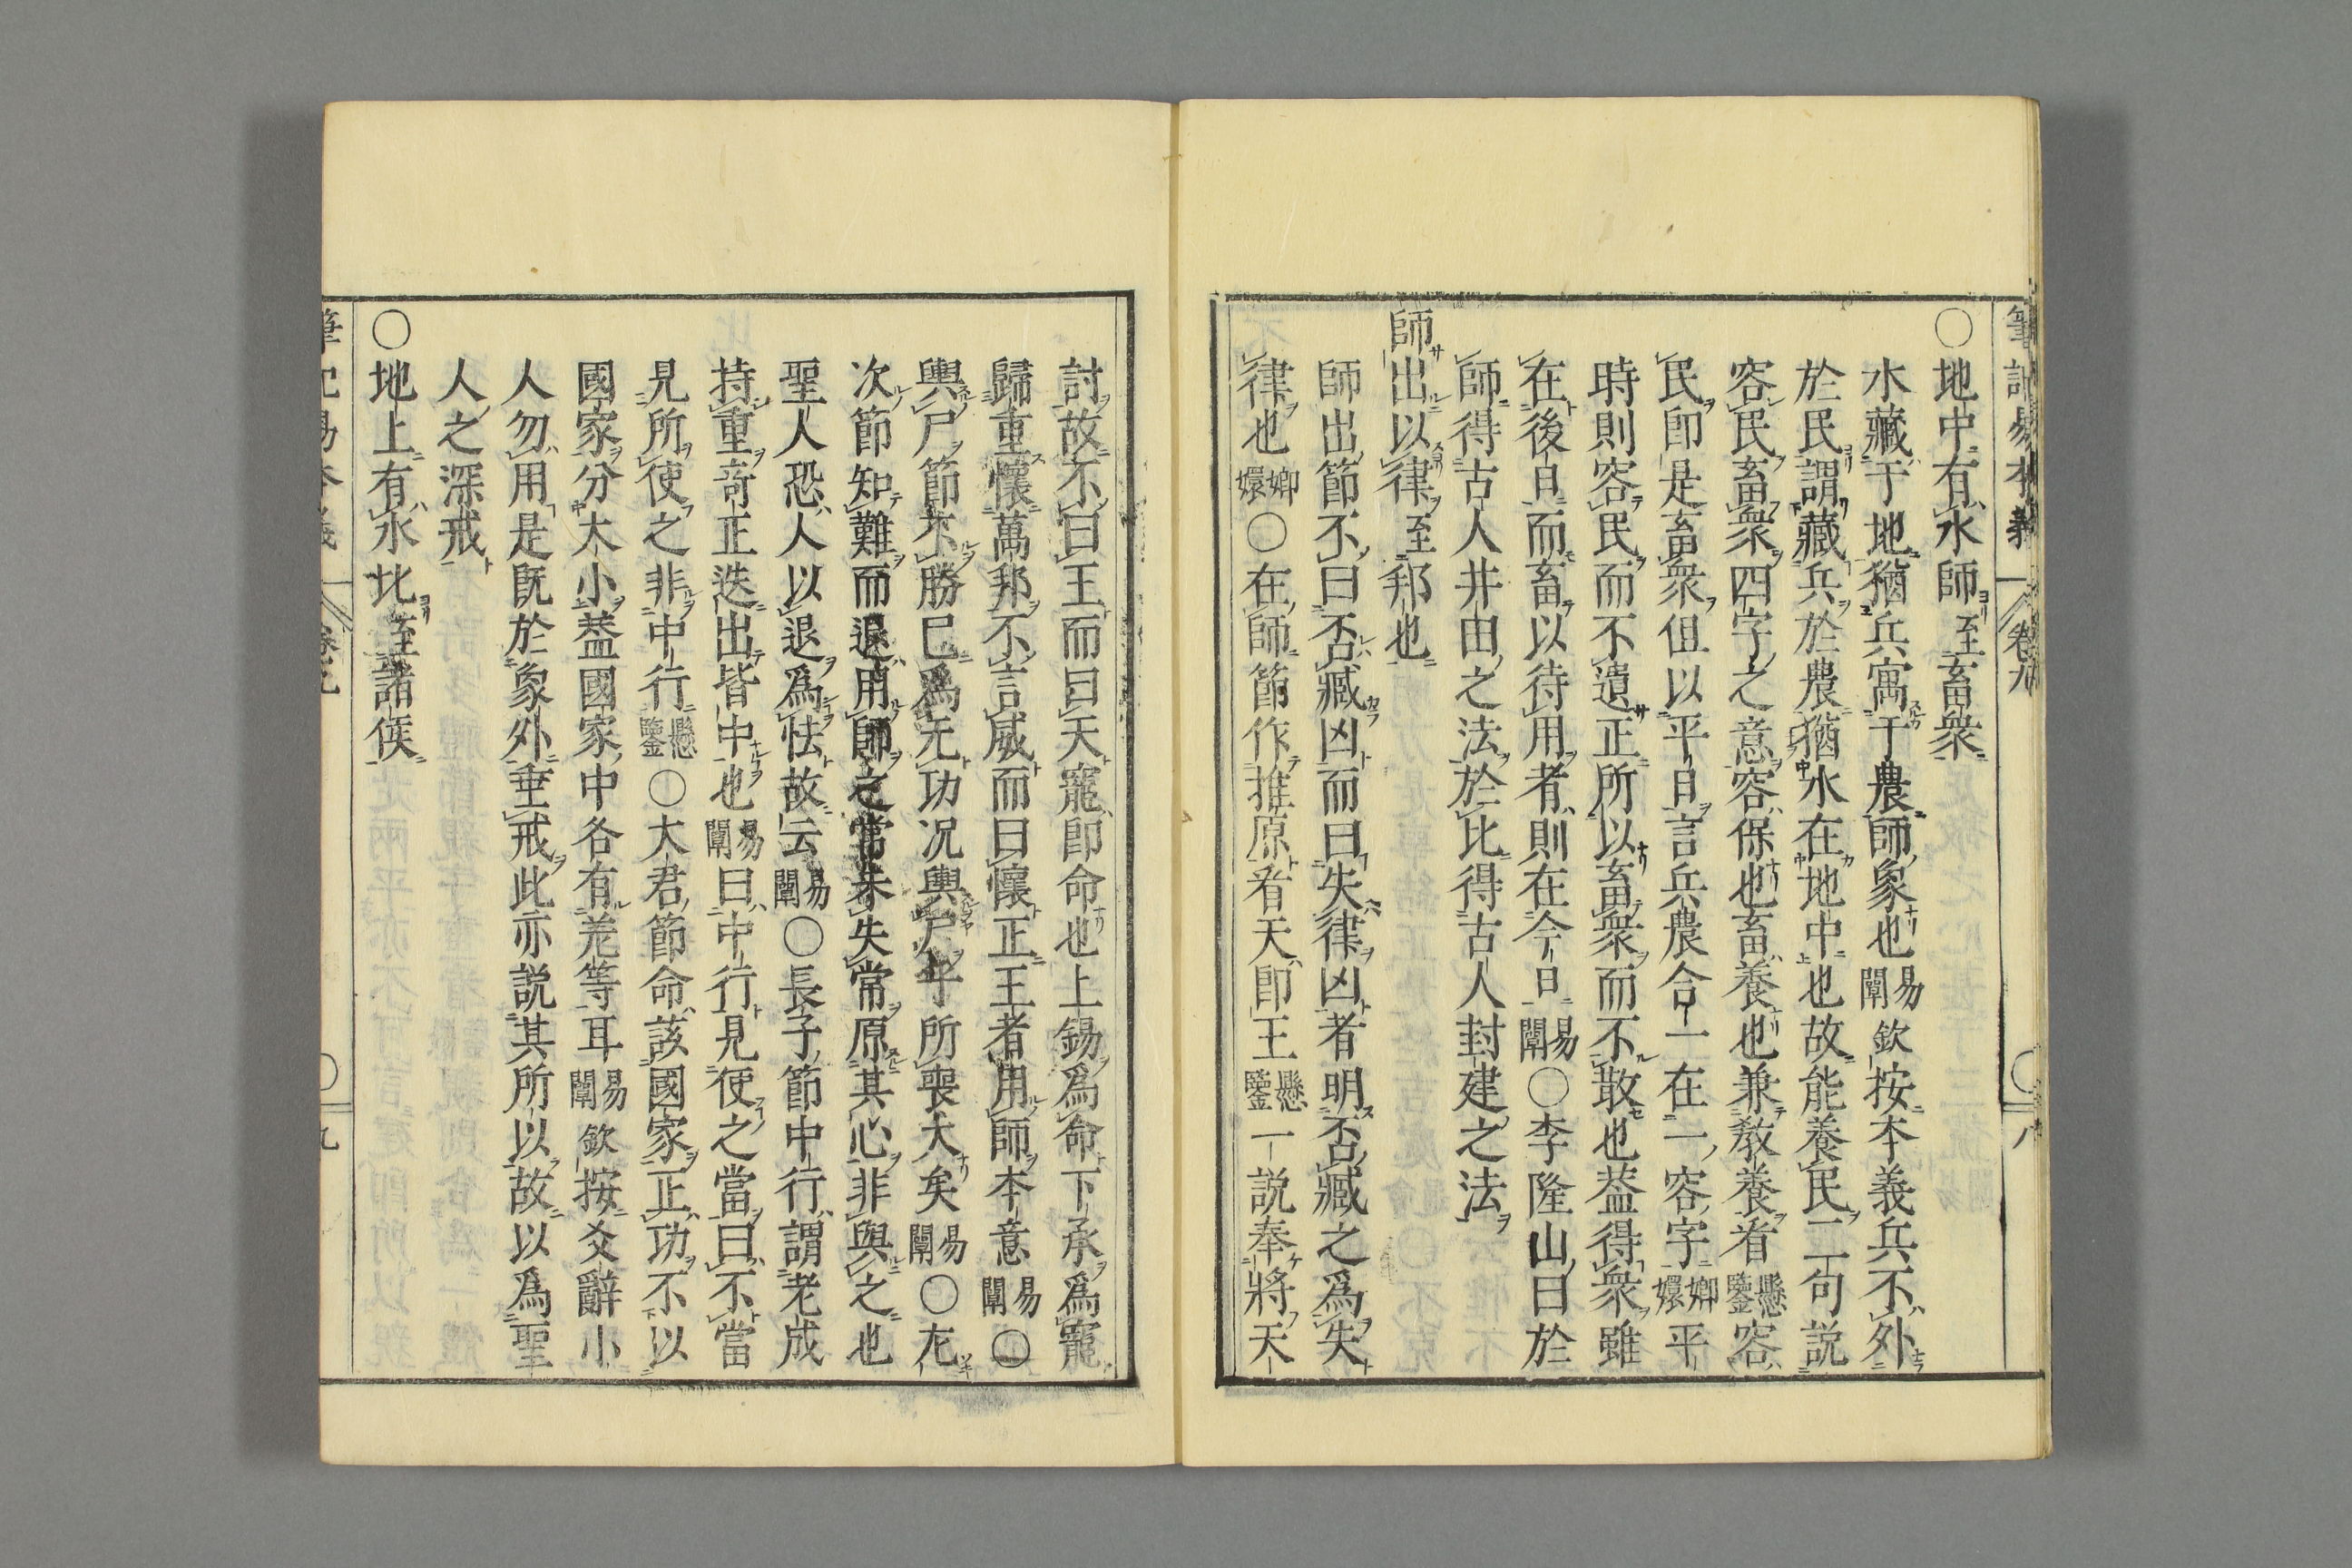 筆記易本義 卷九 〇 八
〇地中有水師至畜衆
水藏于地猶兵寓于農師象也易闡欽按本義兵不外
於民謂藏兵於農猶水在地中也故能養民二句説
容民畜衆四字之意容保也畜養也兼教養者懸鑒容
民即是畜衆但以平日言兵農合一在一容字嫏嬛平
時則容民而不遺正所以畜衆而不散也葢得衆雖
在後日而畜以待用者則在今日易闡〇李隆山曰於
師得古人井由之法於比得古人封建之法
師出以律至邦也
師出節不曰否臧凶而曰失律凶者明否臧之爲失
律也嫏嬛〇在師節作推原看天即王懸鑒一説奉將天
討故不曰王而曰天寵即命也上錫爲命下承爲寵
歸重懷萬邦不言威而曰懷正王者用師本意易闡〇
輿尸節不勝已爲无功况輿尸乎所喪大矣易闡〇左
次節知難而退用師之常未失常原其心非與之也
聖人恐人以退爲怯故云易闡〇長子節中行謂老成
持重竒正迭出皆中也易闡曰中行見使之當曰不當
見所使之非中行懸鑒〇大君節命該國家正功不以
國家分大小葢國家中各有差等耳易闡欽按爻辭小
人勿用是既於象外垂戒此亦説其所以故以爲聖
人之深戒
〇地上有水比至諸侯
筆記易本義 卷九 〇 九